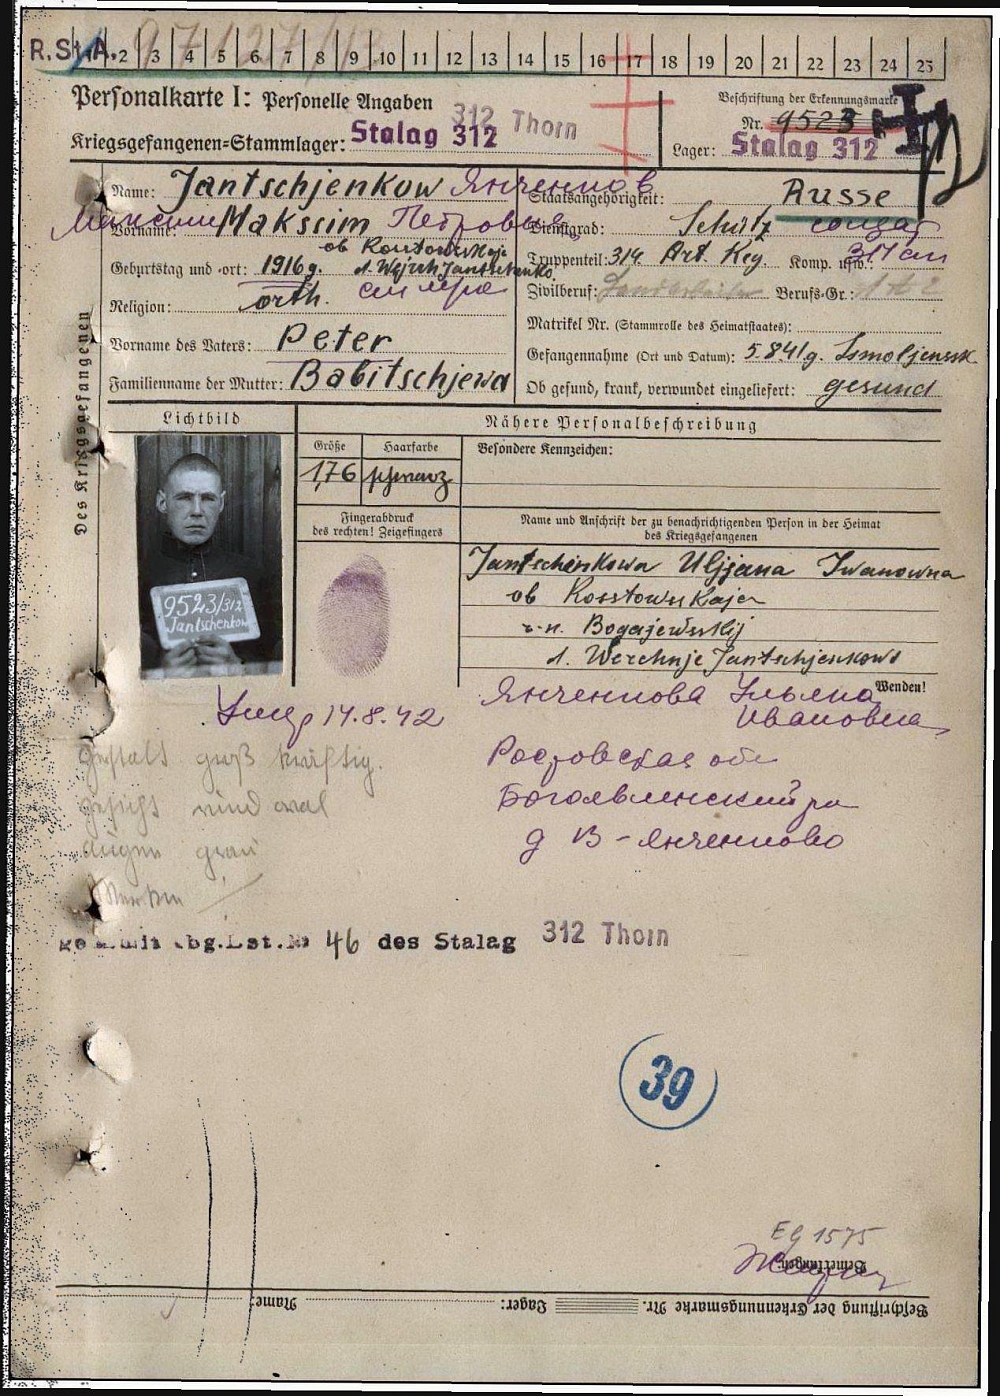 R.St.A. 2 3 4 5 6 7 8 9 10 11 12 13 14 15 16 17 18 19 20 21 22 23 24 25
Personalkarte I: Personelle Angaben
312 Thorn
Kriegsgefangenen-Stammlager: Stalag 312
Beschriftung der Erkennungsmarke
Nr. 9523
Lager: Stalag 312
Des Kriegsgefangenen
Name: Jantschjenkow Янченков
Vorname: Максим Makssim Петрович
ob Rosstowskaja
Geburtstag und -ort: 1916 g.
Religion: orth.
Vorname des Vaters: Peter
Familienname der Mutter: Babitschjewa
Staatsangehörigkeit: Russe
Dienstgrad: Schütz солдат
Truppenteil: 314 Art. Reg. Komp. usw.: 314 ап
Zivilberuf: Landarbeiter Berufs-Gr.:
Matrikel Nr. (Stammrolle des Heimatstaates):
Gefangennahme (Ort und Datum): 5.8 41g. Ssmoljensk
Ob gesund, krank, verwundet eingeliefert: gesund
Lichtbild
Nähere Personalbeschreibung
Größe
1,76
Haarfarbe
schwarz
Besondere Kennzeichen:
Fingerabdruck
des rechten! Zeigefingers
9523/312
Jantschenkow
Name und Anschrift der zu benachrichtigenden Person in der Heimat
des Kriegsgefangenen
Jantschenkowa Uljjana Iwanowna
ob Rosstowskaja
r-n. Bogajewskij
d. Werchnje Jantschjenkowo
Wenden!
Янченкова Ульяна
Ивановна
Ростовская обл
Богоявленский рн
д В-Янченково
Умер 14.8.42
Gestalt groß kräftig.
Gesicht rund oval
Augen grau
des Stalag 312 Thorn
46
39
EG 1575
Bemerkungen:
Beschriftung der Erkennungsmarke Nr. Lager: Name: